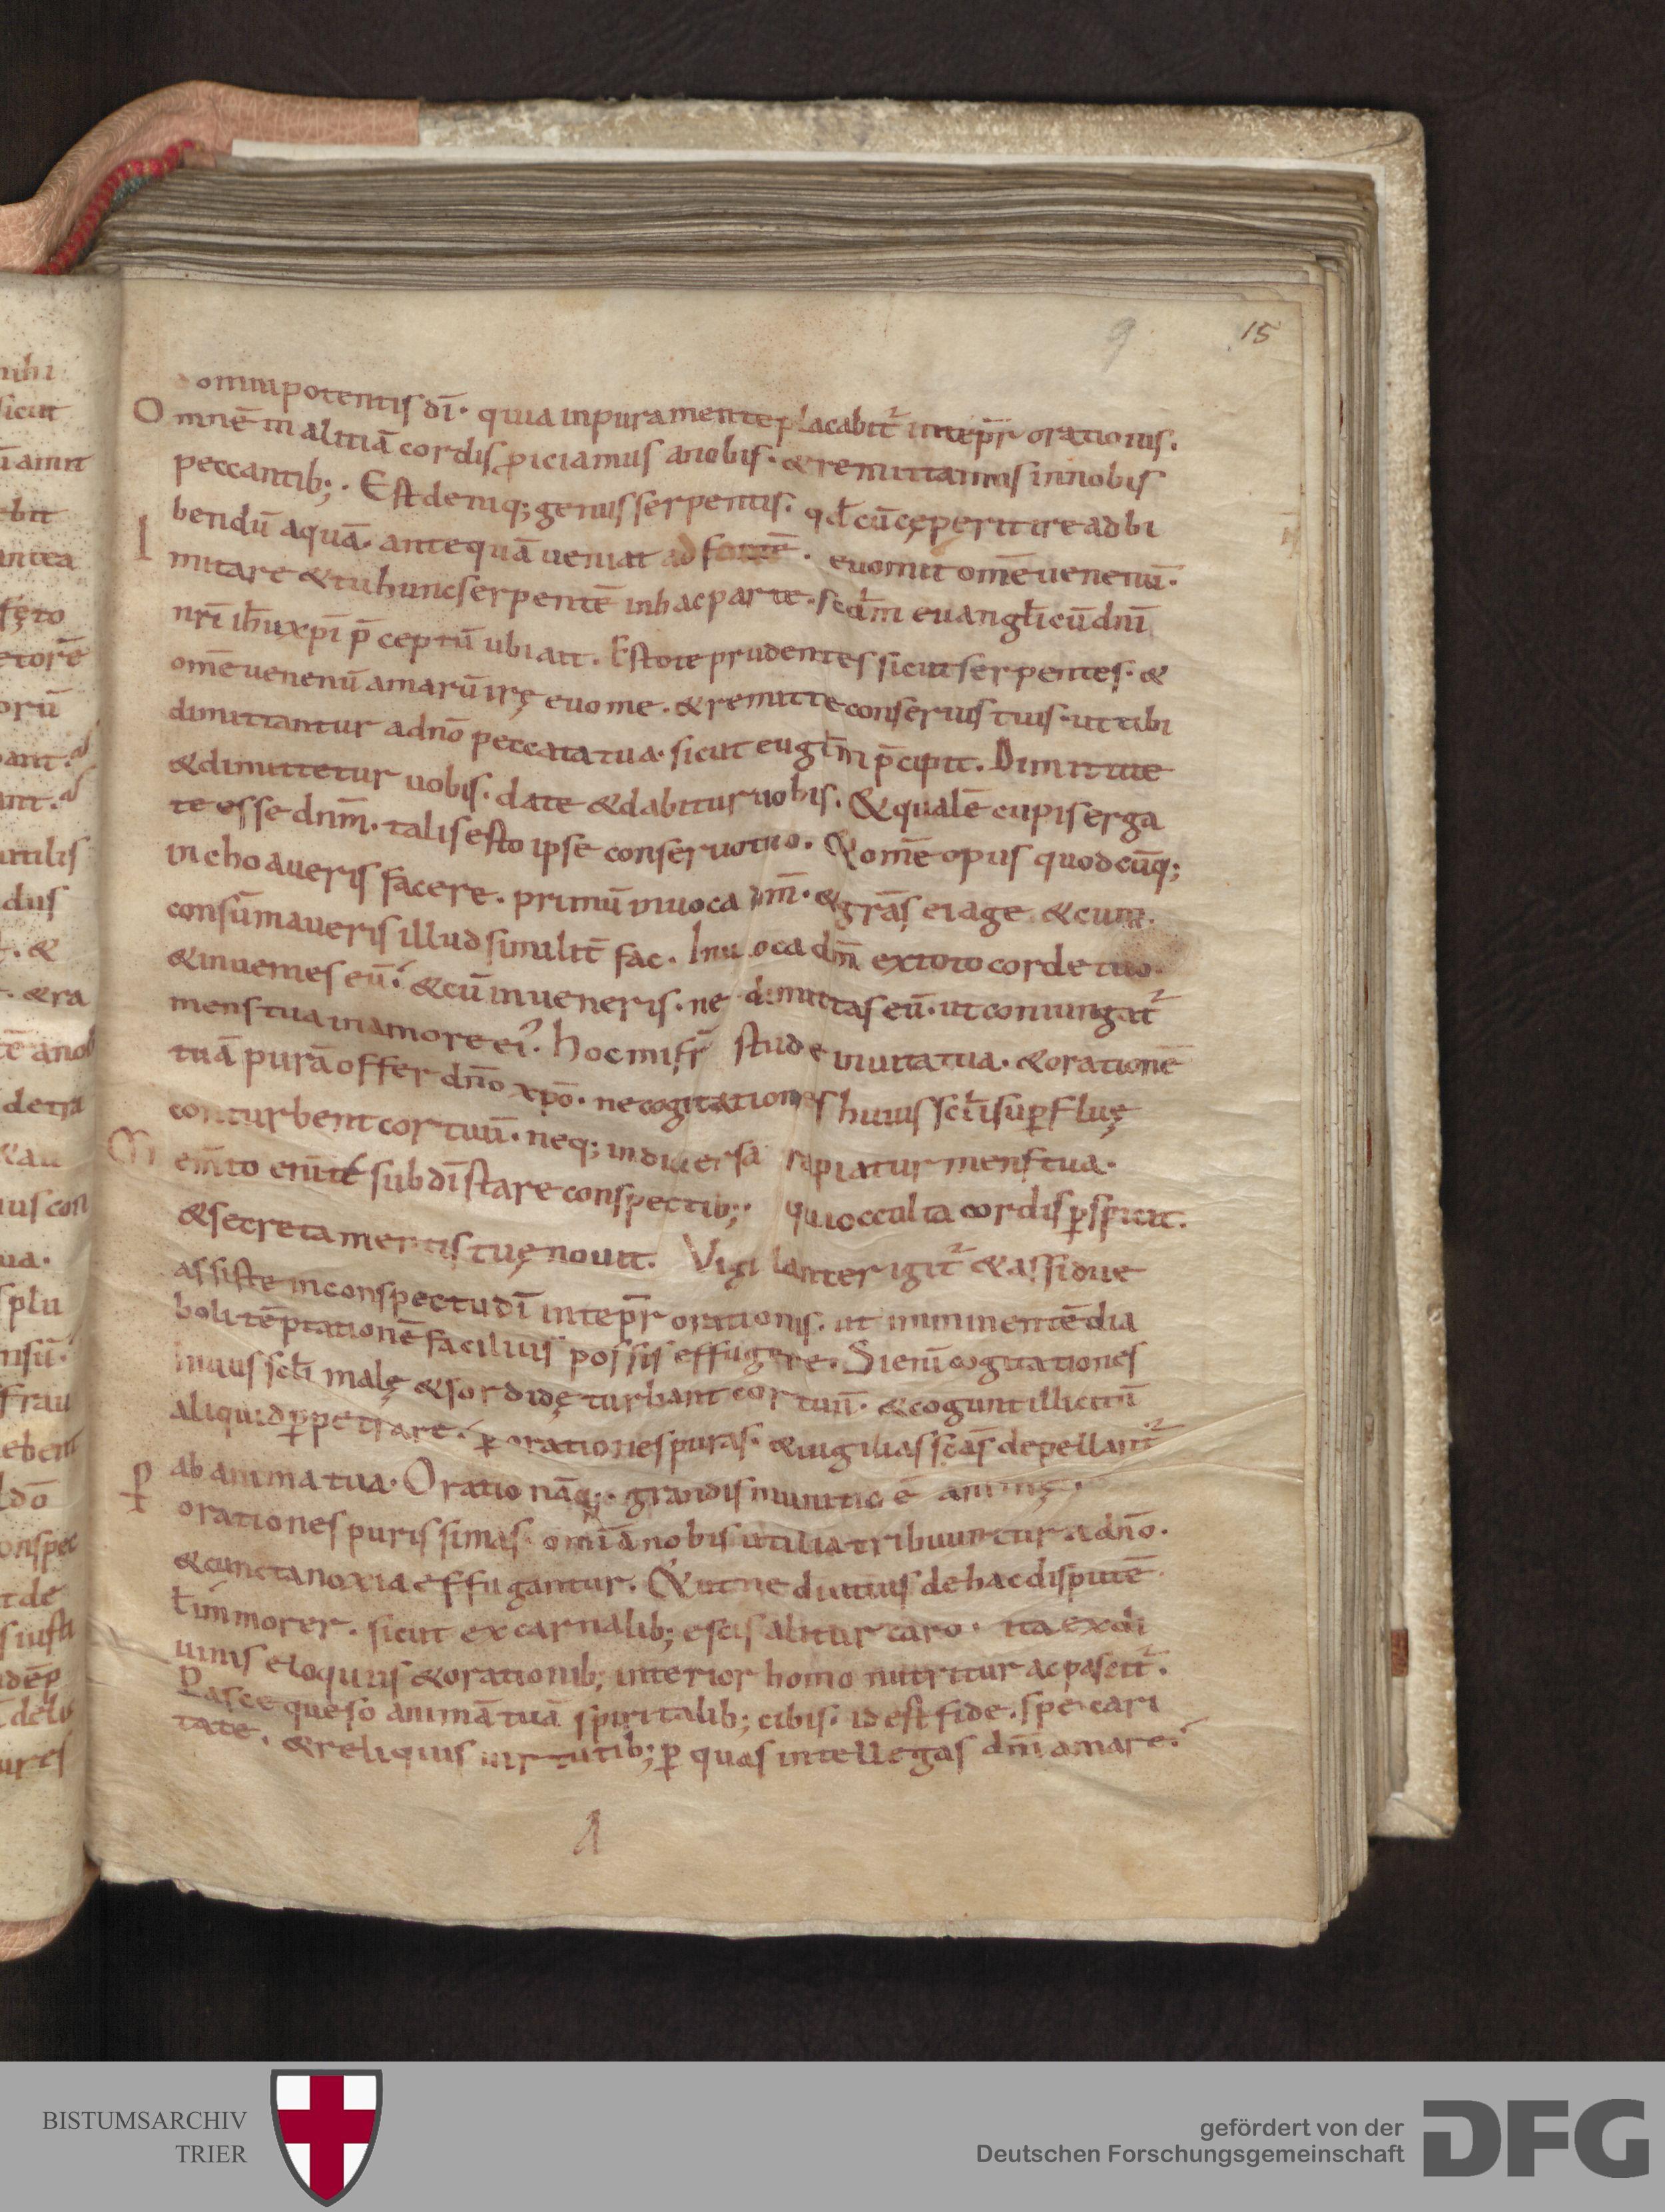 9 15
omnipotentis dī· quia in pura mente placabit᷒ intēpr̄ orationis.
Omnē malitiā cordis ꝓiciamus a nobis· & remittamus in nobis
peccantib;· Est deniq; genus serpentis· qđ cū cęperit ire ad bi
bendū aquā· antequā ueniat ad fontē· euomit omē uenenū·
Imitare & tu hunc serpentē in hac parte· scđm euangl̄icū dnī
nr̄i ih̄u xpī p̄ceptū ubi ait· Estote prudentes sicut serpentes· &
omē uenenū amarū irę euome· & remitte conseruis tuis· ut tibi
dimittantur a dnō peccata tua· sicut eugl̄m p̄cipit. Dimittite
& dimittetur uobis· date & dabitur uobis. & qualē cupis erga
te esse dnm̄· talis esto ipse conseruo tuo. & omē opus quodcūq;
inchoaueris facere· primū inuoca dm̄· & grās̄ ei age & cum
consūmaueris illud similit̄ fac· Inuoca dm̄ ex toto corde tuo·
& inuenies eū· & cū inueneris· ne dimittas eū· ut coniungat᷒
mens tua in amore ei᷒· hoc mi fr̄ stude in uita tua· & orationē
tuā purā offer dnō xpō· ne cogitationes huius scl̄i suꝑfluę
conturbent cor tuū· neq; in diuersa rapiatur mens tua·
Memto enī te sub dī stare conspectib;· qui occulta cordis ꝑspicit.
& secreta mentis tuę nouit. Vigilanter igit᷒ & assidue
assiste in conspectu dī intēpr̄ orationis. ut imminentē dia
boli tēptationē facilius possis effugere. Si enī cogitationes
huius scl̄i malę & sordidę turbant cor tuū· & cogunt illicitū
aliquid ꝑpetrare· ꝑ orationes puras· & uigilias scās̄ depellant᷒
ab anima tua· Oratio nāq;· grandis munitio ē animę·
ꝑ orationes purissimas· omīa nobis utilia tribuuntur a dnō·
& cuncta noxia effugantur. & ut ne diutius de hac disputē
ł inmorer· sicut ex carnalib; escis alitur caro· ita ex di
uinis eloquiis & orationib; interior homo nutritur ac pascit᷒·
Pasce queso animā tuā spiritalib; cibis· id est fide· spe cari
tate· & reliquis uirtutib; ꝑ quas intellegas dnm̄ amare·
BISTUMSARCHIV
TRIER
gefördert von der
Deutschen Forschungsgemeinschaft
DFG